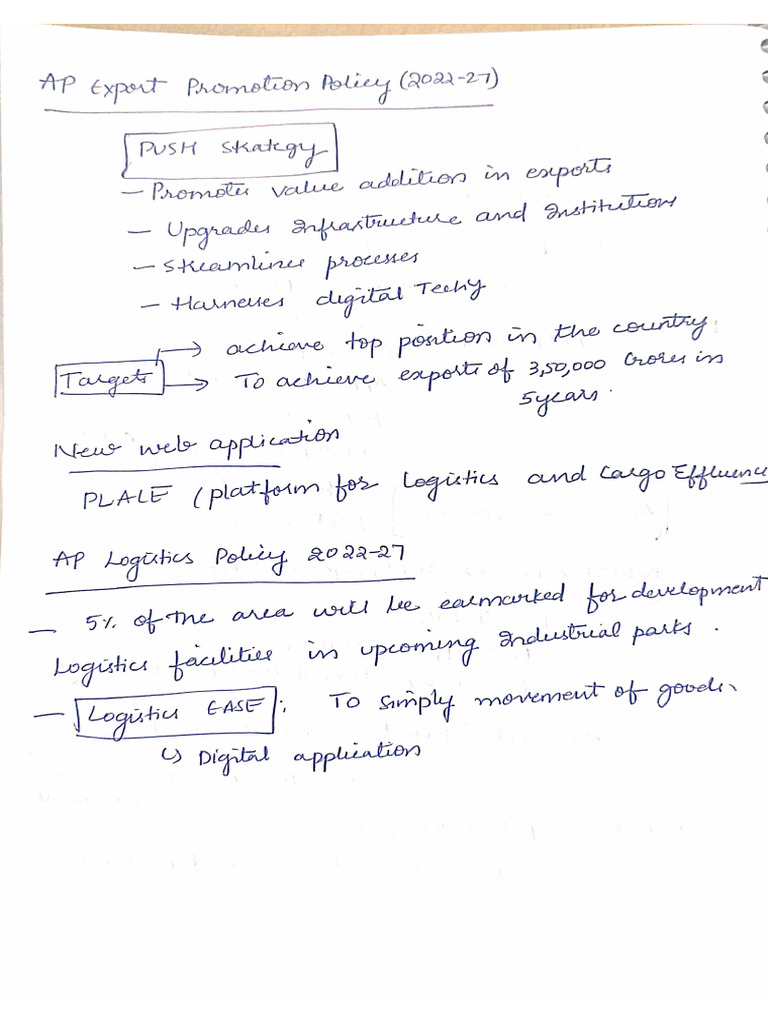 AP Export Promotion Policy (2022-27)
PUSH Strategy
- Promotes value addition in exports
- Upgrades Infrastructure and Institutions
- Streamlines processes
- Harnesses digital Techy
Targets → achieve top position in the country
→ To achieve exports of 3,50,000 Crores in
5 years.
New web application
PLALE (platform for Logistics and Cargo Effluence
AP Logistics Policy 2022-27
- 5% of the area will be earmarked for development
Logistics facilities in upcoming Industrial parks.
- Logistics EASE: To simply movement of goods.
↳ Digital application